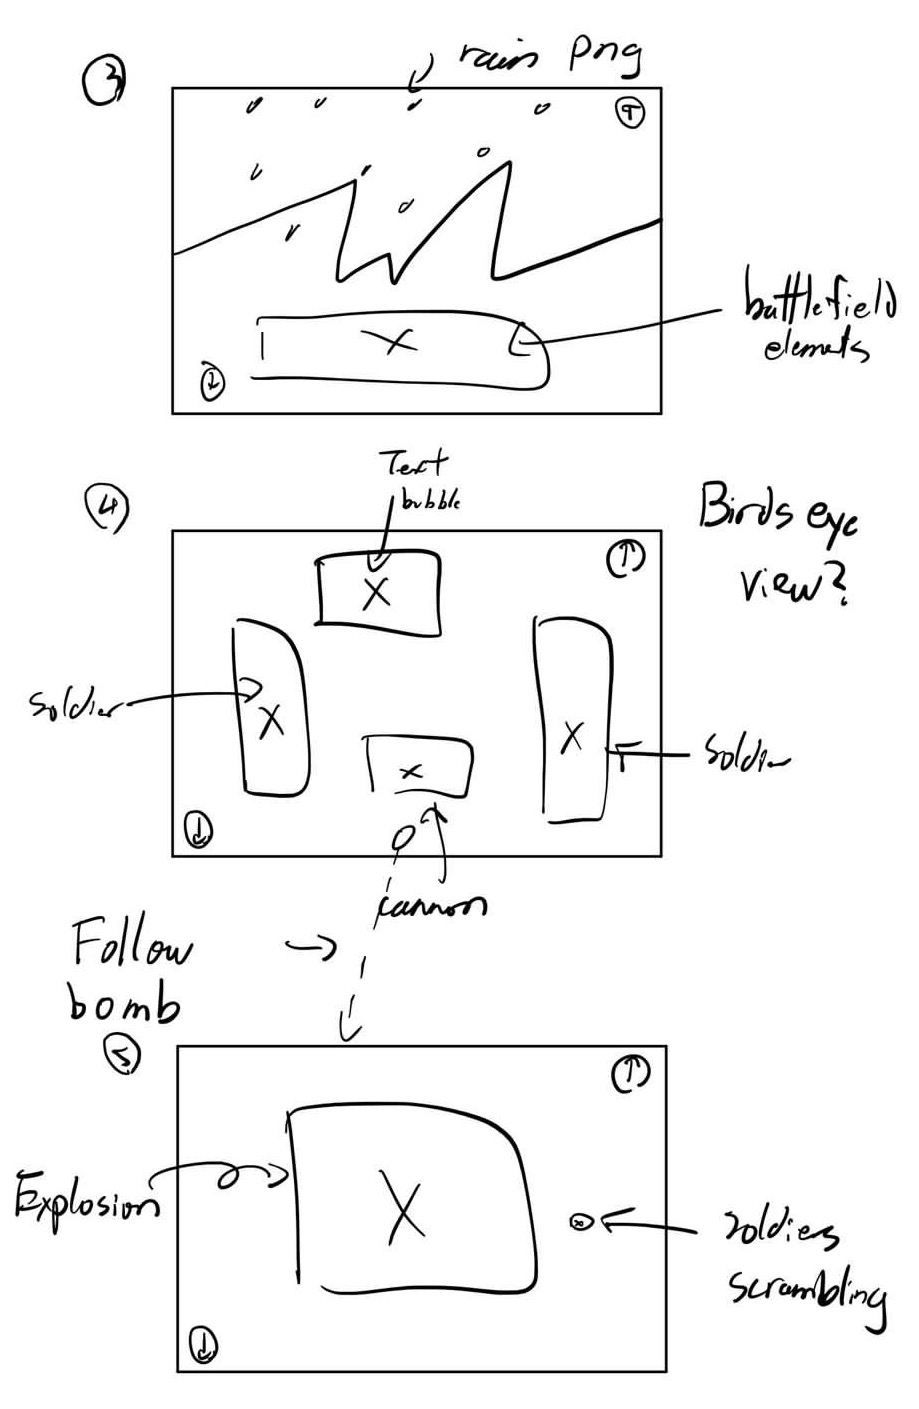 ③
rain png
battlefield
elements
④
Text
bubble
Birds eye
view?
X
soldier
X
X
soldier
X
cannon
Follow
bomb
⑤
Explosion
X
soldiers
scrambling